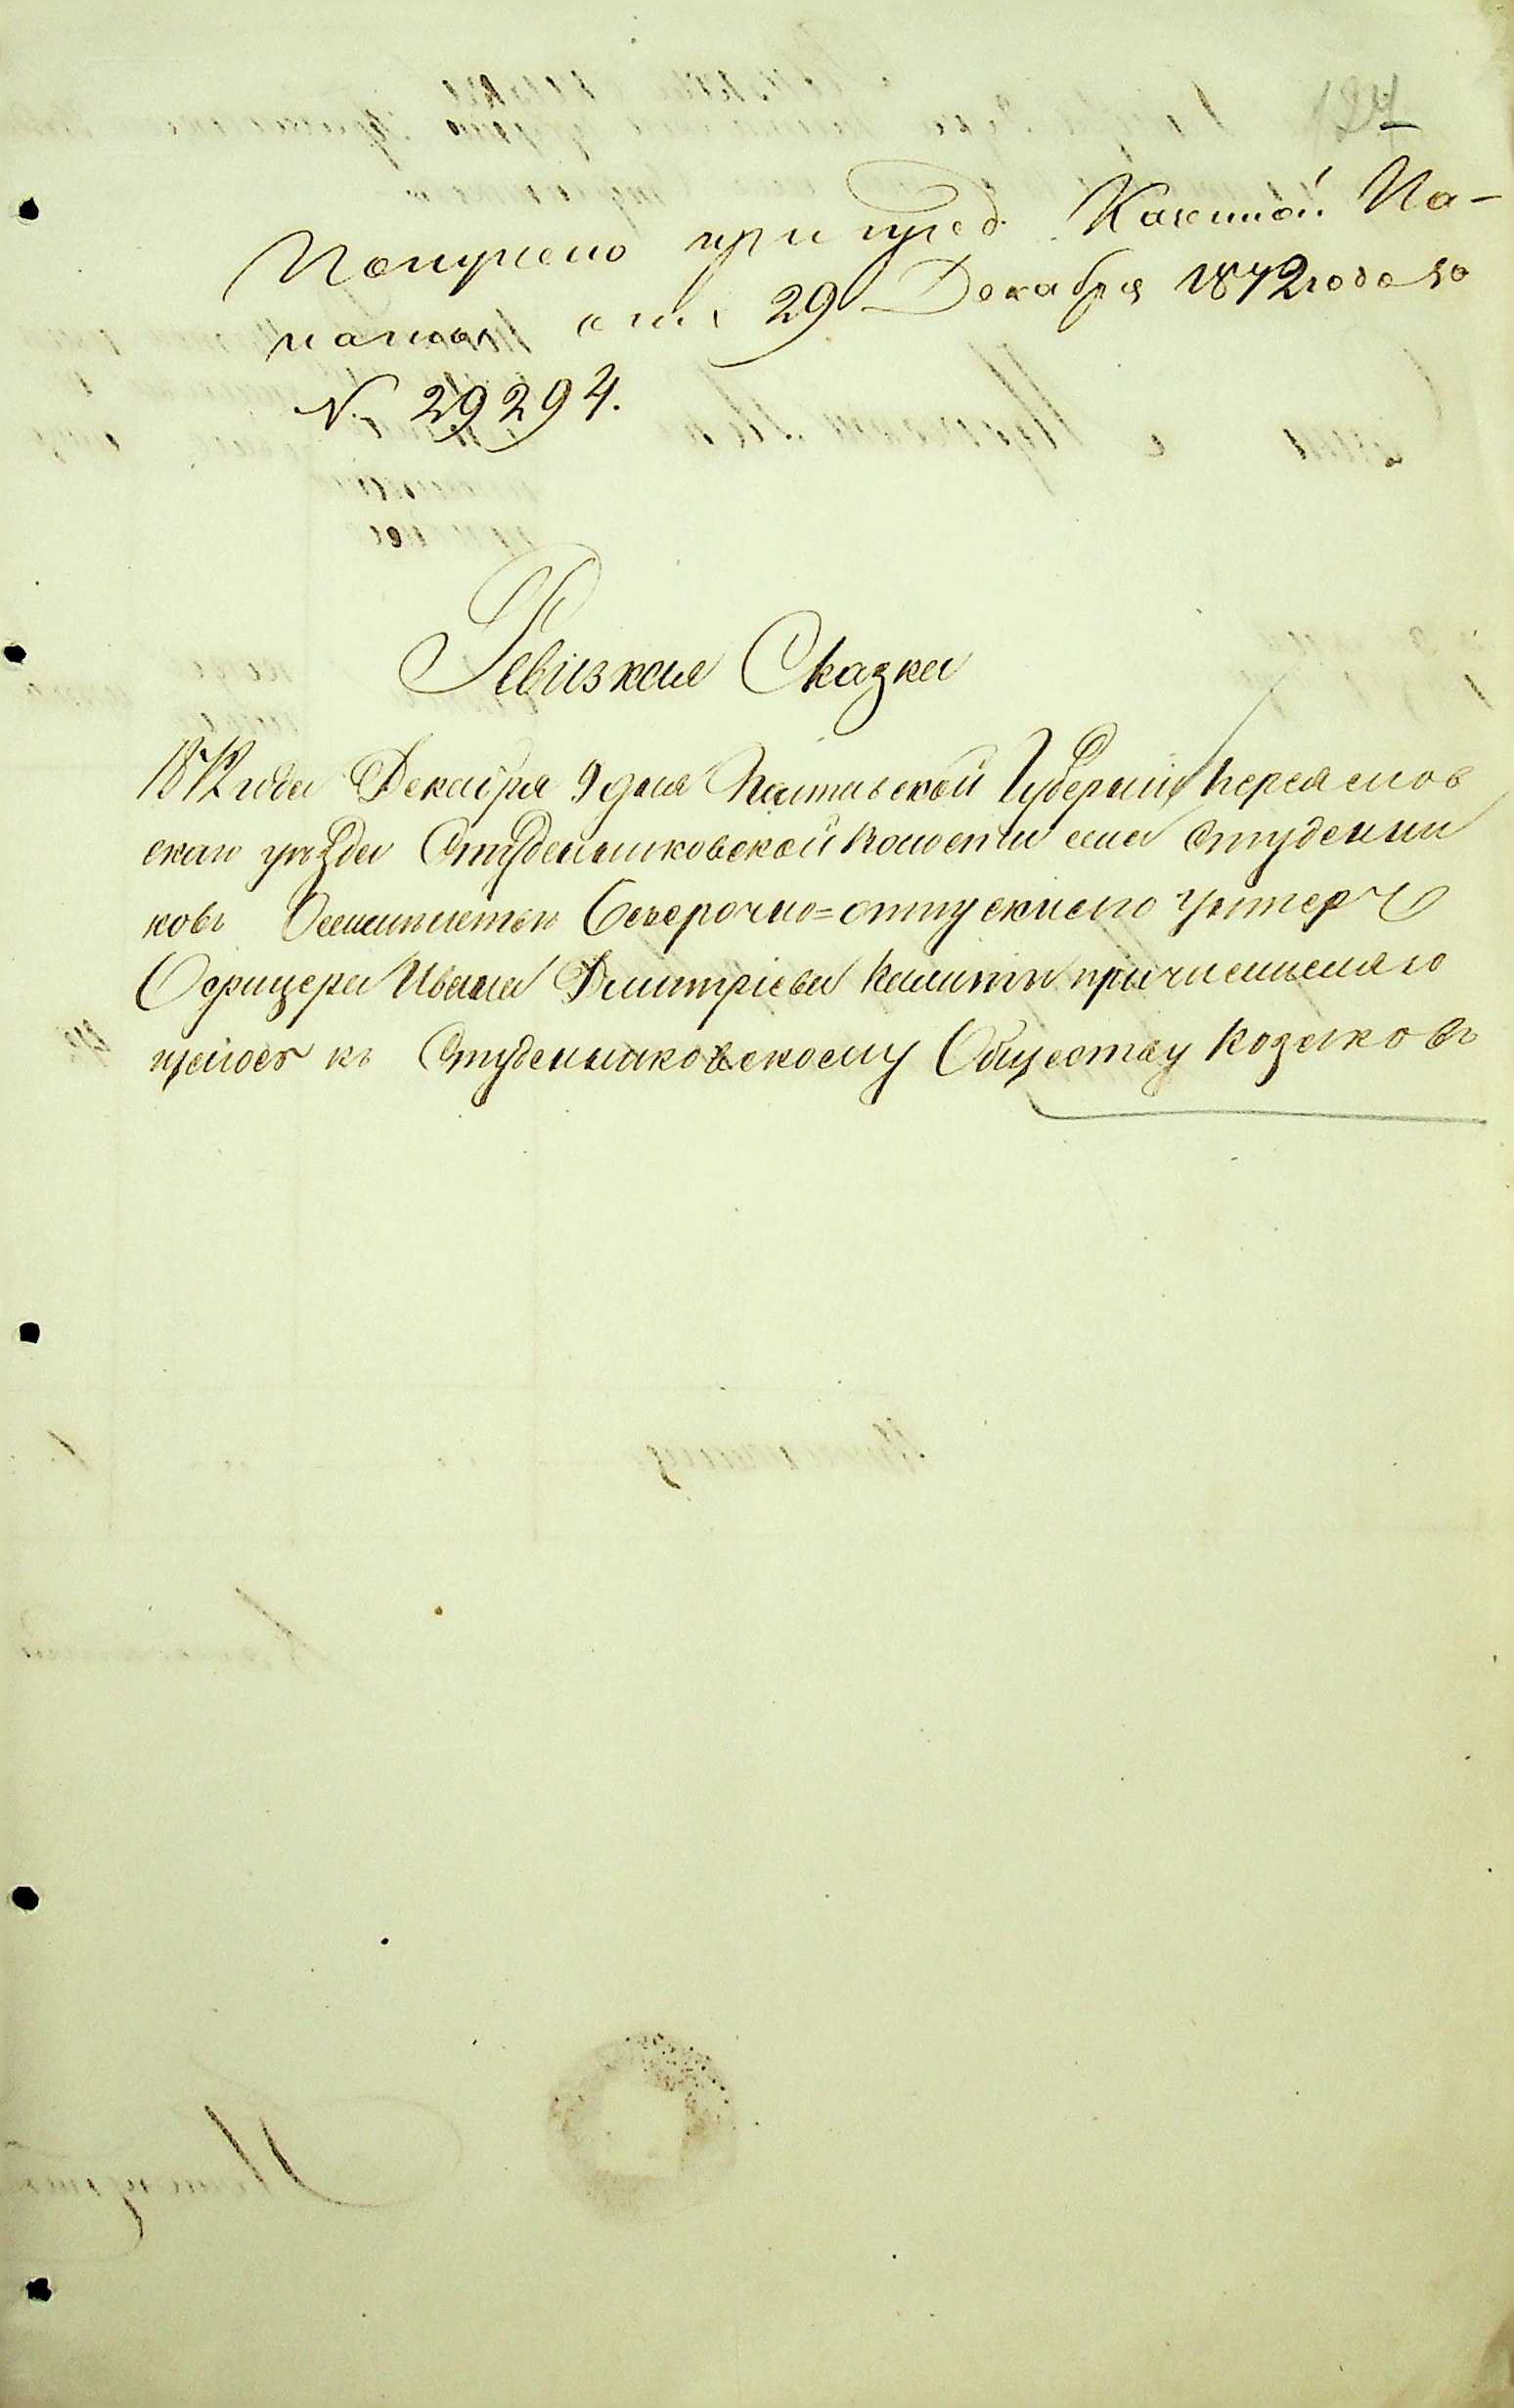 127
Получено при пред. Казенной Па-
латы отъ 29 Декабря 1872 года за
№ 29294.
Ревизкая Сказка
1872 года Декабря 9 дня Полтавской Губерніи Переяслов
скаго уѣзда Студениковской волости села Студени
ковъ Безсрочно=отпускнаго Унтеръ
Офицера Ивана Димитріева Калиты причисляемаго
ся къ Студениковскому Обществу Козаковъ